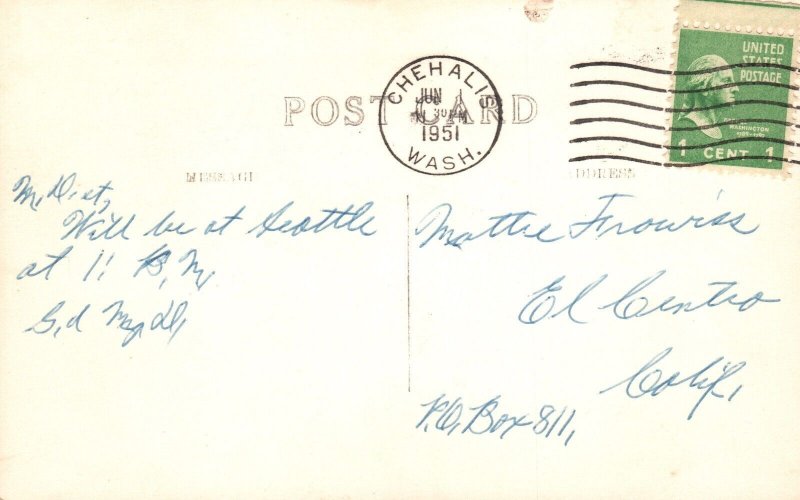 POST CARD
CHEHALIS
JUN
1951
WASH.
UNITED
STATES
POSTAGE
WASHINGTON
1 CENT 1
MESSAGE
ADDRESS
Will be at Seattle
at 11
Mattie Frowiss
El Centro
Calif,
P.O, Box 811,